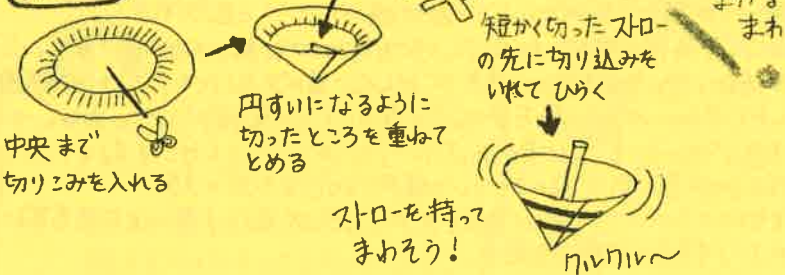 中央まで
切りこみを入れる
円すいになるように
切ったところを重ねて
とめる
短かく切ったストロー
の先に切り込みを
いれて ひらく
ストローを持って
まわそう!
クルクル〜
まわ